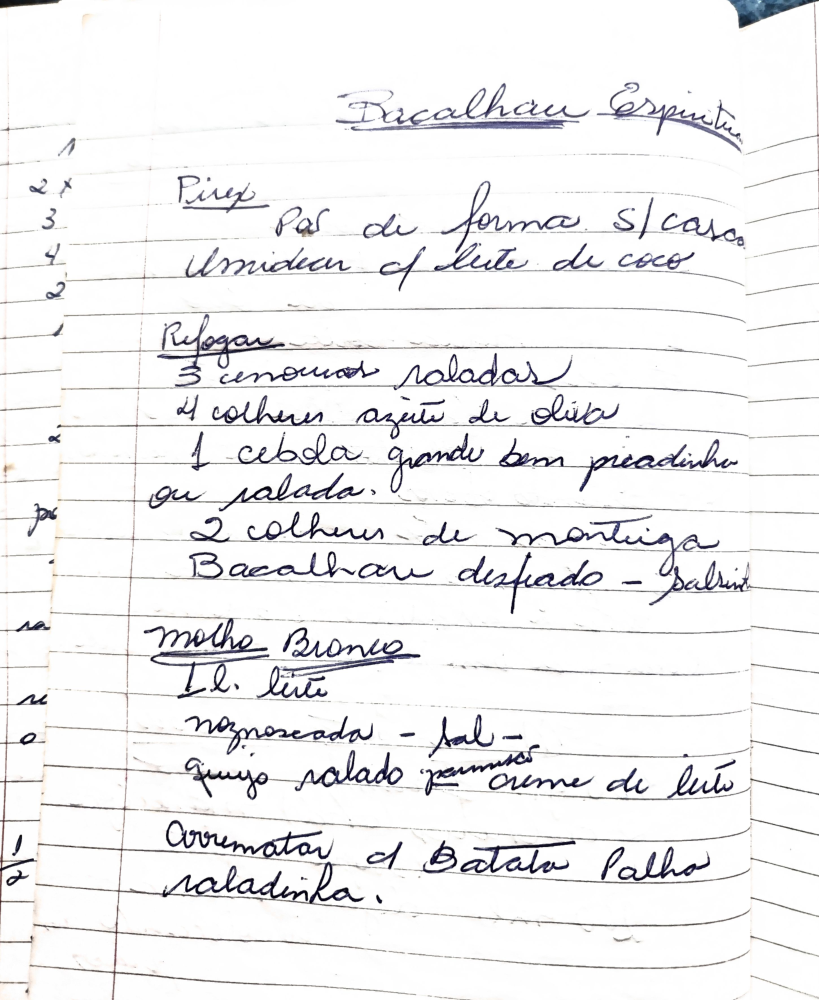 Bacalhau Espiritu
Pirex
Pão de forma s/ casca
Umidecer c/ leite de coco
Refogar
3 cenouras raladas
4 colheres azeite de oliva
1 cebola grande bem picadinha
ou ralada.
2 colheres de manteiga
Bacalhau desfiado - salsinh
Molho Branco
1 l. leite
noz noscada - sal -
queijo ralado parmesão creme de leite
Arrematar c/ Batata Palha
raladinha.
1
2 x
3
4
2
1
ra
o
1/2